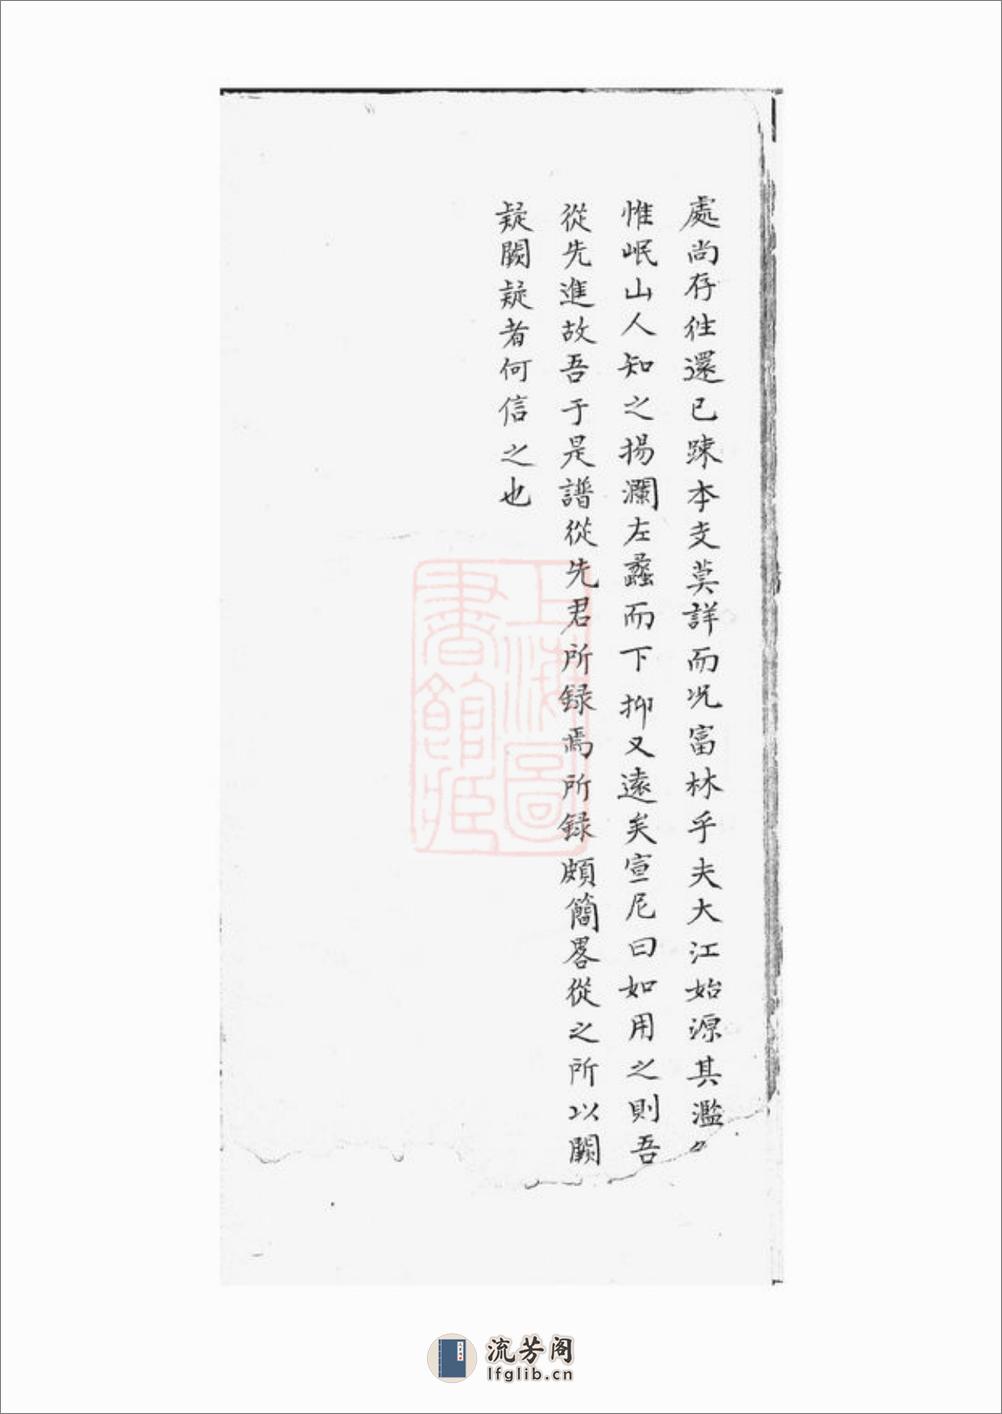 處尚存徃還已踈本支莫詳而况富林乎夫大江始源其濫々
惟岷山人知之揚瀾左蠡而下抑又遠矣宣尼曰如用之則吾
從先進故吾于是譜從先君所録焉所録頗簡畧從之所以闕
疑闕疑者何信之也
上海圖書館藏
流芳阁
lfglib.cn